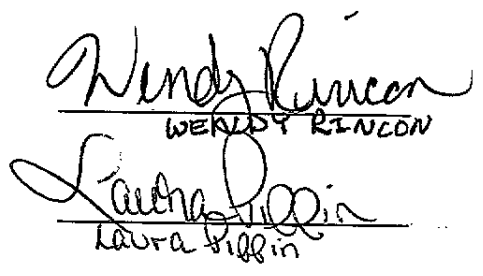 Wendy Rincon
WENDY RINCON
Laura Piffin
Laura Piffin